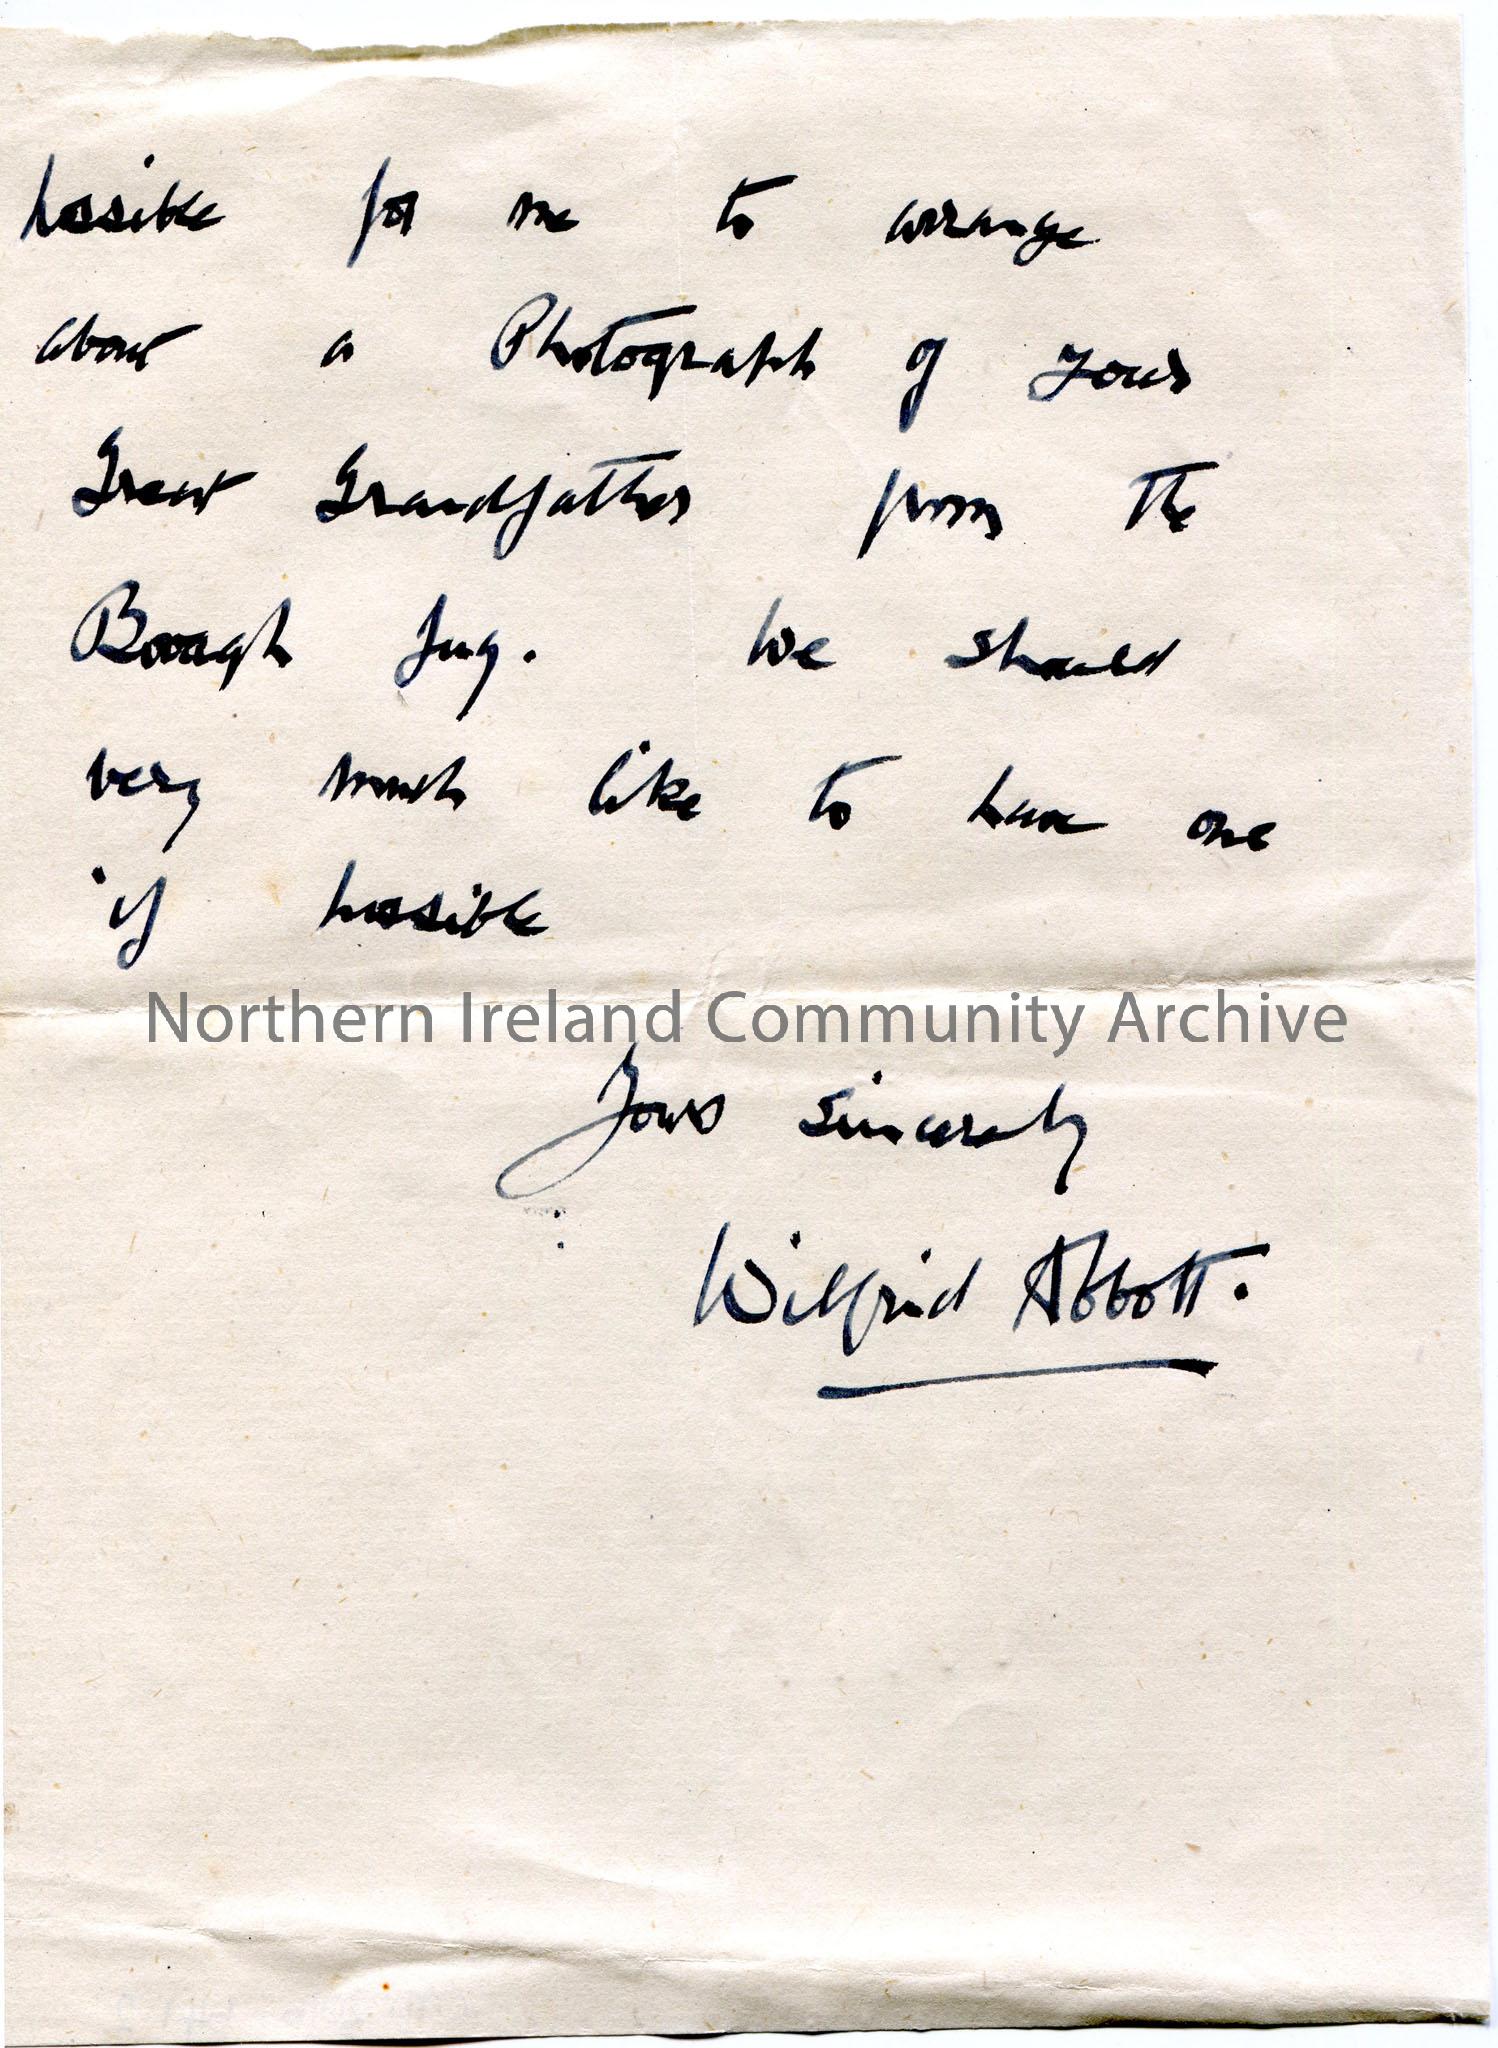 possible for me to arrange
about a Photograph of your
Great Grandfather from the
Borough Jug. We should
very much like to have one
if possible
Northern Ireland Community Archive
Yours Sincerely
Wilfrid Abbott.